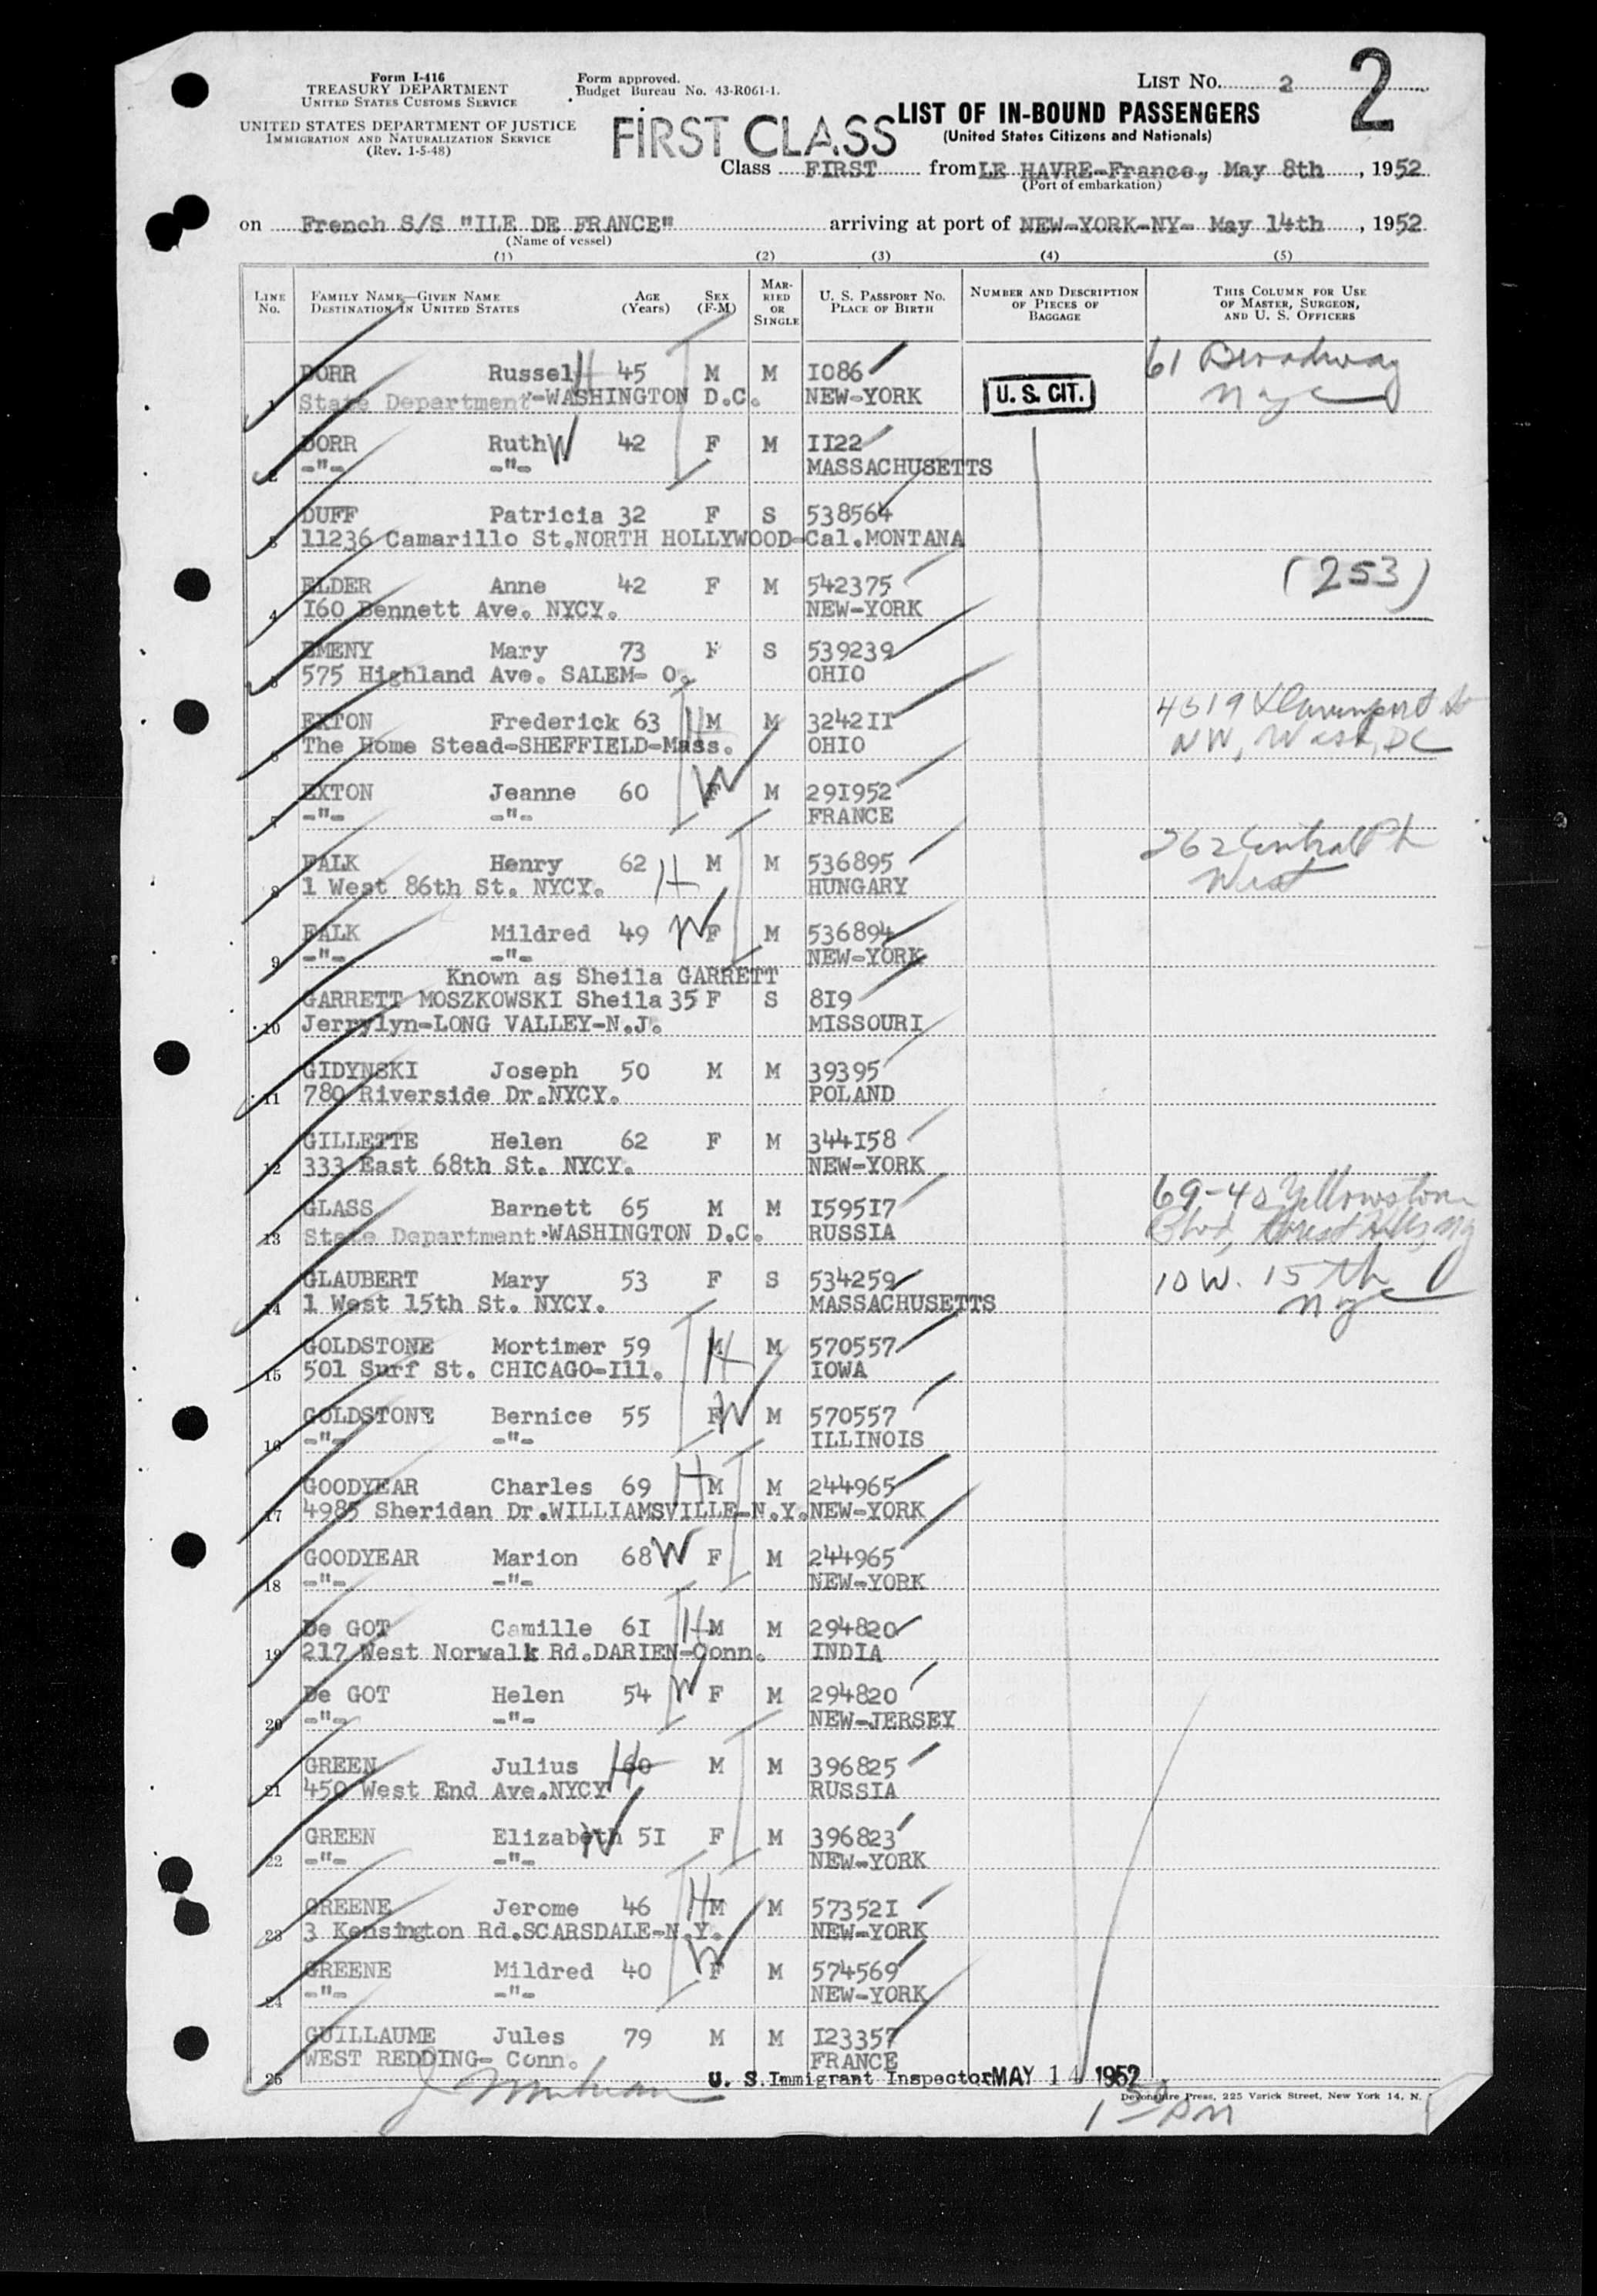 Form I-416
TREASURY DEPARTMENT
UNITED STATES CUSTOMS SERVICE
UNITED STATES DEPARTMENT OF JUSTICE
IMMIGRATION AND NATURALIZATION SERVICE
(Rev. 1-5-48)
Form approved.
Budget Bureau No. 43-R061-1.
LIST No. 2
2
FIRST CLASS
LIST OF IN-BOUND PASSENGERS
(United States Citizens and Nationals)
Class FIRST from LE HAVRE-France, May 8th, 1952
(Port of embarkation)
on French S/S "ILE DE FRANCE" arriving at port of NEW-YORK-NY- May 14th, 1952
(Name of vessel)
(1) (2) (3) (4) (5)
LINE No. FAMILY NAME—GIVEN NAME DESTINATION IN UNITED STATES AGE (Years) SEX (F-M) MARRIED OR SINGLE U. S. PASSPORT NO. PLACE OF BIRTH NUMBER AND DESCRIPTION OF PIECES OF BAGGAGE THIS COLUMN FOR USE OF MASTER, SURGEON, AND U. S. OFFICERS
DORR Russel H 45 M M 1086 61 Broadway
1 State Department-WASHINGTON D.C. NEW-YORK U. S. CIT. NYC
DORR Ruth W 42 F M 1122
2 -"- -"- MASSACHUSETTS
DUFF Patricia 32 F S 538564
3 11236 Camarillo St.NORTH HOLLYWOOD-Cal.MONTANA
ELDER Anne 42 F M 542375 (253)
4 160 Bennett Ave. NYCY. NEW-YORK
EMENY Mary 73 F S 539239
5 575 Highland Ave. SALEM- O. OHIO
EXTON Frederick 63 H M M 324211 4619 Davenport St
6 The Home Stead-SHEFFIELD-Mass. OHIO NW, Wash, DC
EXTON Jeanne 60 W F M 291952
7 -"- -"- FRANCE
FALK Henry 62 H M M 536895 262 Central Pk
8 1 West 86th St. NYCY. HUNGARY West
FALK Mildred 49 W F M 536894
9 -"- -"- NEW-YORK
Known as Sheila GARRETT
GARRETT MOSZKOWSKI Sheila 35 F S 819
10 Jerrylyn-LONG VALLEY-N.J. MISSOURI
GIDYNSKI Joseph 50 M M 39395
11 780 Riverside Dr.NYCY. POLAND
GILLETTE Helen 62 F M 344158
12 333 East 68th St. NYCY. NEW-YORK
GLASS Barnett 65 M M 159517 69-40 Yellowstone
13 State Department-WASHINGTON D.C. RUSSIA Blvd, Forest Hills, NY
GLAUBERT Mary 53 F S 534259 10 W. 15th
14 1 West 15th St. NYCY. MASSACHUSETTS NYC
GOLDSTONE Mortimer 59 M H M 570557
15 501 Surf St. CHICAGO-Ill. IOWA
GOLDSTONE Bernice 55 F W M 570557
16 -"- -"- ILLINOIS
GOODYEAR Charles 69 H M M 244965
17 4985 Sheridan Dr.WILLIAMSVILLE-N.Y.NEW-YORK
GOODYEAR Marion 68 W F M 244965
18 -"- -"- NEW-YORK
De GOT Camille 61 H M M 294820
19 217 West Norwalk Rd.DARIEN-Conn. INDIA
De GOT Helen 54 W F M 294820
20 -"- -"- NEW-JERSEY
GREEN Julius H 60 M M 396825
21 450 West End Ave.NYCY RUSSIA
GREEN Elizabeth W 51 F M 396823
22 -"- -"- NEW-YORK
GREENE Jerome 46 H M M 573521
23 3 Kensington Rd.SCARSDALE-N.Y. NEW-YORK
GREENE Mildred 40 W F M 574569
24 -"- -"- NEW-YORK
GUILLAUME Jules 79 M M 123357
WEST REDDING- Conn. FRANCE
25 U. S. Immigrant Inspector MAY 14 1952
Devonshire Press, 225 Varick Street, New York 14, N.
1 30 PM